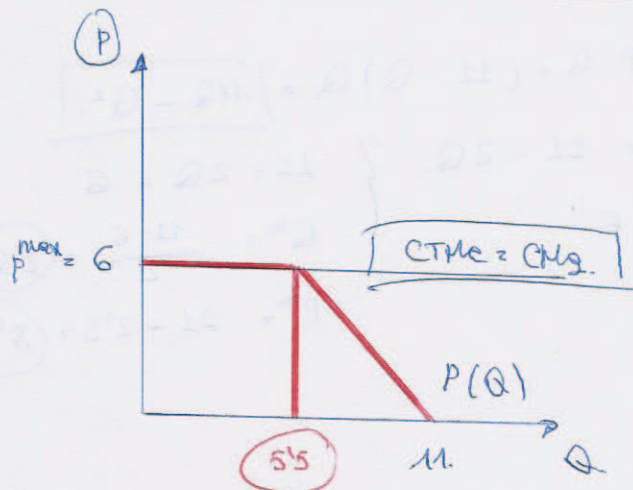 P
p^max = 6
CTMe = CMg.
P(Q)
5'5
11.
Q